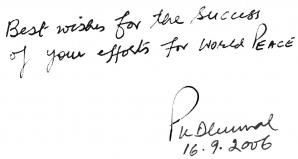 Best wishes for the success
of your efforts for WORLD PEACE
16.9.2006